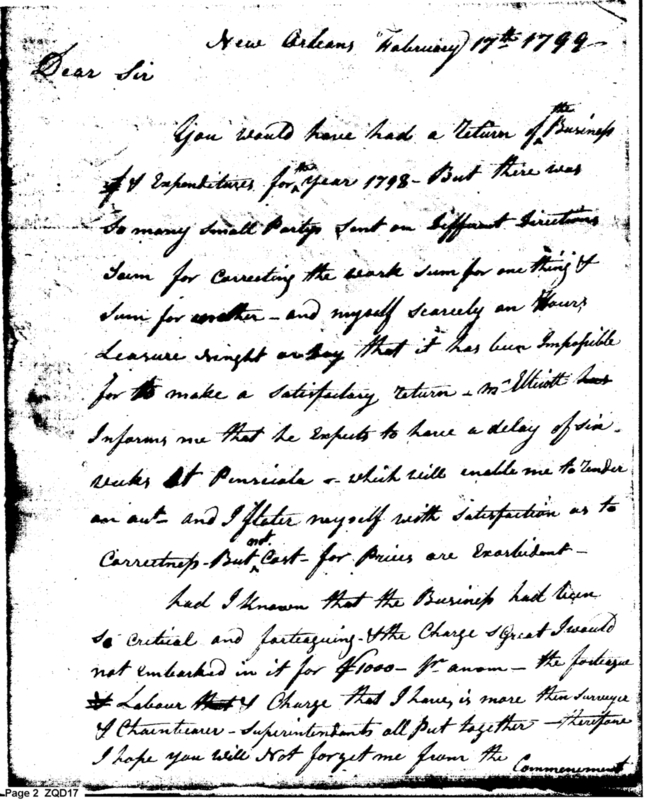 New Orleans February 17th 1799
Dear Sir
You would have had a return of the Business
& Expenditures for the Year 1798 - But there was
So many small Partys Sent on Different Directions
Sum for Correcting the work sum for one thing &
Sum for another - and myself scarcely an Hours
Leasure Night or Day that it has been Impossible
for to make a Satisfactory return - Mr Ellicott
Informs me that he Expects to have a delay of six
weeks At Pensicola - which will enable me to render
an act - and I flater myself with satisfaction as to
Correctness - But not Cost - for Prices are Exorbident -
had I Known that the Business had been
So Critical and forteaguing - & the Charge so Great I would
not embarked in it for $1000 - pr anom - the forteague
Labour & Charge that I have, is more then Surveyer
& Chainbearer - Superintendants all Put together - therefore
I hope you will Not forget me from the Commencement
Page 2 ZQD17